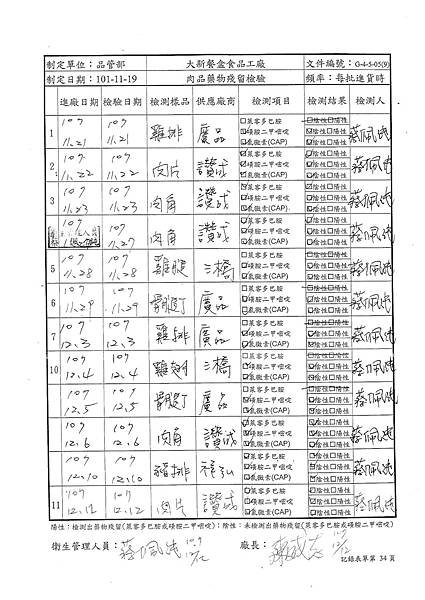 制定單位：品管部 大新餐盒食品工廠 文件編號：G-4-5-05(9)
制定日期：101-11-19 肉品藥物殘留檢驗 頻率：每批進貨時
進廠日期 檢驗日期 檢測樣品 供應廠商 檢測項目 檢測結果 檢測人
1 107 11.21 107 11.21 雞排 廣品 □萊客多巴胺 ☑磺胺二甲嘧啶 ☑氯黴素(CAP) □陰性□陽性 ☑陰性□陽性 ☑陰性□陽性 蔡佩純
2 107 11.22 107 11.22 肉片 讚成 ☑萊客多巴胺 ☑磺胺二甲嘧啶 ☑氯黴素(CAP) ☑陰性□陽性 ☑陰性□陽性 ☑陰性□陽性 蔡佩純
3 107 11.23 107 11.23 肉角 讚成 ☑萊客多巴胺 ☑磺胺二甲嘧啶 ☑氯黴素(CAP) ☑陰性□陽性 ☑陰性□陽性 ☑陰性□陽性 蔡佩純
107 107 11.27 肉角 讚成 ☑萊客多巴胺 ☑磺胺二甲嘧啶 ☑氯黴素(CAP) ☑陰性□陽性 ☑陰性□陽性 ☑陰性□陽性 蔡佩純
5 107 11.28 107 11.28 雞腿 三橋 □萊客多巴胺 ☑磺胺二甲嘧啶 ☑氯黴素(CAP) □陰性□陽性 ☑陰性□陽性 ☑陰性□陽性 蔡佩純
6 107 11.29 107 11.29 骨腿丁 廣品 □萊客多巴胺 ☑磺胺二甲嘧啶 ☑氯黴素(CAP) □陰性□陽性 ☑陰性□陽性 ☑陰性□陽性 蔡佩純
7 107 12.3 107 12.3 雞排 廣品 □萊客多巴胺 ☑磺胺二甲嘧啶 ☑氯黴素(CAP) □陰性□陽性 ☑陰性□陽性 ☑陰性□陽性 蔡佩純
10 107 12.4 107 12.4 雞翅 三橋 □萊客多巴胺 ☑磺胺二甲嘧啶 ☑氯黴素(CAP) □陰性□陽性 ☑陰性□陽性 ☑陰性□陽性 蔡佩純
107 12.5 107 12.5 骨腿丁 廣品 □萊客多巴胺 ☑磺胺二甲嘧啶 ☑氯黴素(CAP) □陰性□陽性 ☑陰性□陽性 ☑陰性□陽性 蔡佩純
107 12.6 107 12.6 肉角 讚成 ☑萊客多巴胺 ☑磺胺二甲嘧啶 ☑氯黴素(CAP) ☑陰性□陽性 ☑陰性□陽性 ☑陰性□陽性 蔡佩純
107 12.10 107 12.10 豬排 ☑萊客多巴胺 ☑磺胺二甲嘧啶 ☑氯黴素(CAP) ☑陰性□陽性 ☑陰性□陽性 ☑陰性□陽性 蔡佩純
11 107 12.12 107 12.12 肉片 讚成 ☑萊客多巴胺 ☑磺胺二甲嘧啶 ☑氯黴素(CAP) ☑陰性□陽性 ☑陰性□陽性 ☑陰性□陽性 蔡佩純
陽性：檢測出藥物殘留(萊客多巴胺或磺胺二甲嘧啶)；陰性：未檢測出藥物殘留(萊客多巴胺或磺胺二甲嘧啶)
衛生管理人員：蔡佩純 107 12/12 廠長： 107 12/12
記錄表單第 34 頁